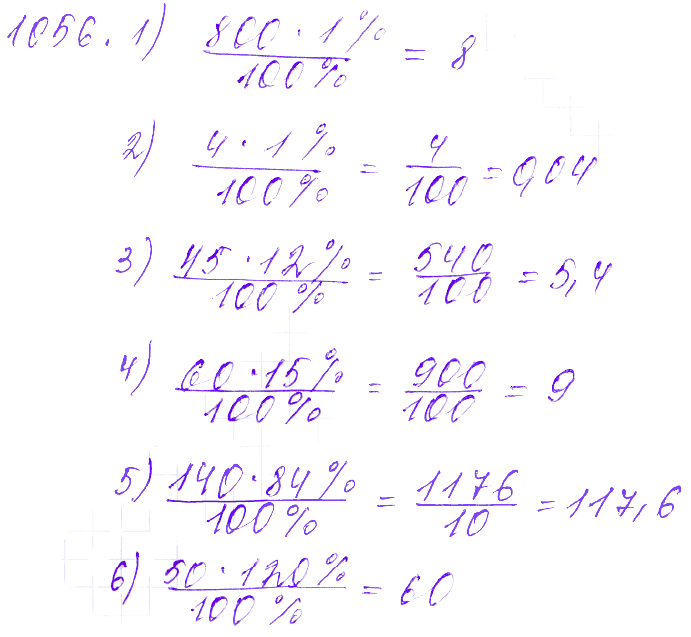 1056. 1) 800 · 1% / 100% = 8
2) 4 · 1% / 100% = 4 / 100 = 0,04
3) 45 · 12% / 100% = 540 / 100 = 5,4
4) 60 · 15% / 100% = 900 / 100 = 9
5) 140 · 84% / 100% = 1176 / 10 = 117,6
6) 50 · 120% / 100% = 60